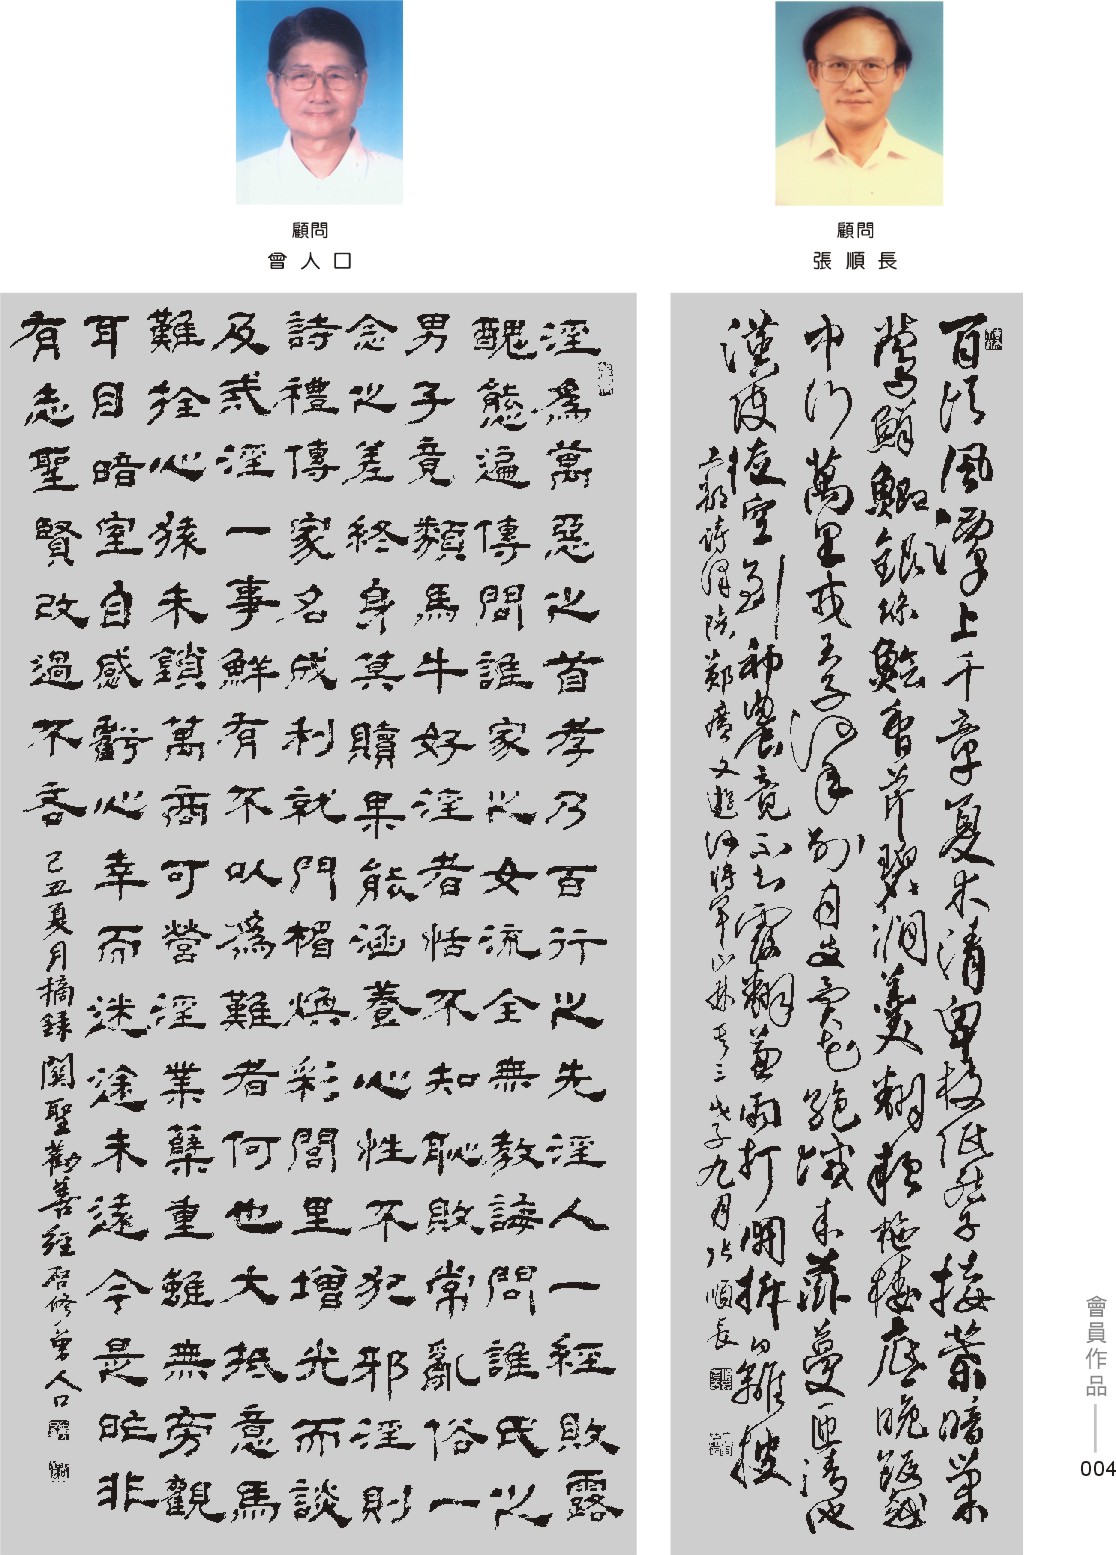 顧問
曾人口
淫為萬惡之首孝乃百行之先淫人一經敗露
醜態遍傳問誰家之女流全無教誨問誰氏之
男子竟類馬牛好淫者恬不知恥敗常亂俗一
念之差終身莫贖果能涵養心性不犯邪淫則
詩禮傳家名成利就門楣煥彩閭里增光而談
及戒淫一事鮮有不以為難者何也大抵意馬
難拴心猿未鎖萬商可營淫業孽重雖無旁觀
耳目暗室自感虧心幸而迷途未遠今是昨非
有志聖賢改過不吝 己丑夏月摘錄關聖勸善經啓修曾人口
顧問
張順長
百頃風潭上千章夏木清卑枝低結子接葉暗巢
鶯鮮鯽銀絲鱠香芹碧澗羹翻疑柂樓底晚飯越
中行萬里戎王子何年別月支異花絕域來滋蔓匝清池
漢使徒空到神農竟不知露翻兼雨打開拆日離披
工部詩陪鄭廣文遊何將軍山林其三戊子九月張順長
會員作品
004